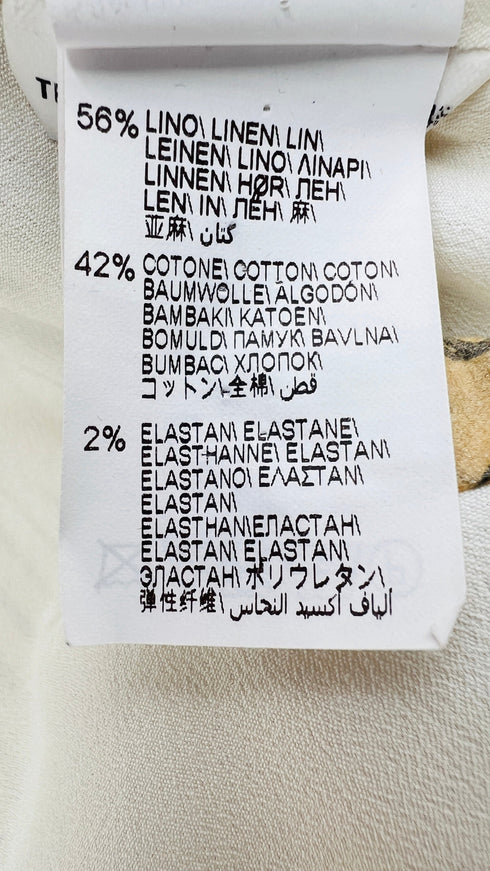 56% LINO\ LINEN\ LIN\
LEINEN\ LINO\ ΛΙΝΑΡΙ\
LINNEN\ HØR\ ЛЕН\
LEN\ IN\ ЛЕН\ 麻\
亚麻\ كتان
42% COTONE\ COTTON\ COTON\
BAUMWOLLE\ ALGODÓN\
BAMBAKI\ KATOEN\
BOMULD\ ПАМУК\ BAVLNA\
BUMBAC\ ХЛОПОК\
コットン\ 全棉\ قطن
2% ELASTAN\ ELASTANE\
ELASTHANNE\ ELASTAN\
ELASTANO\ ΕΛΑΣΤΑΝ\
ELASTAN\
ELASTHAN\ЕЛАСТАН\
ELASTAN\ ELASTAN\
ЭЛАСТАН\ ポリウレタン\
弹性纤维\ ألياف أكسيد النحاس